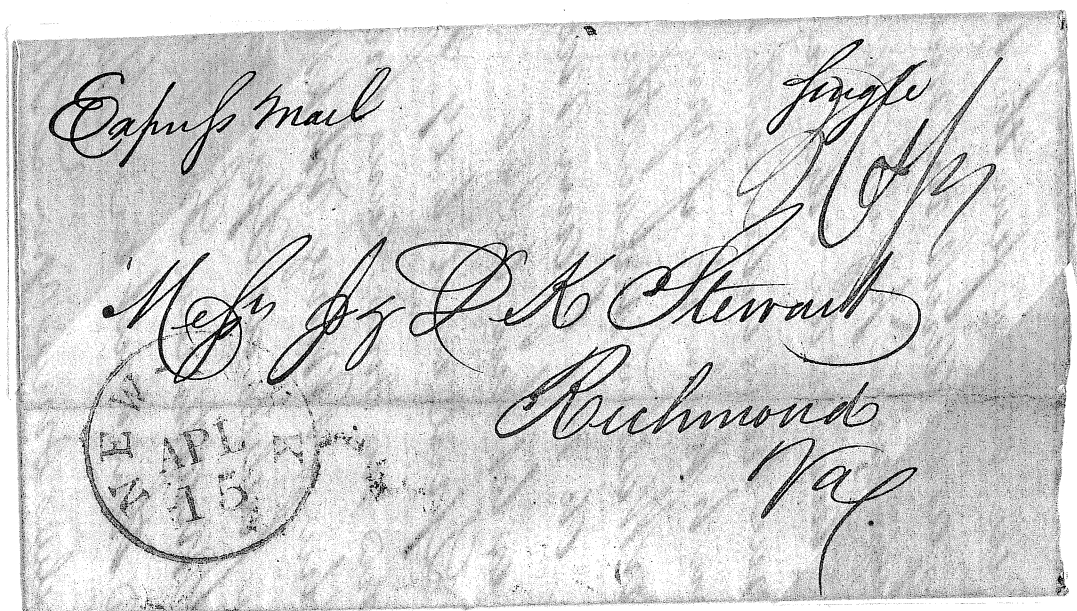 Express Mail
Single
Messrs Js & D K Stewart
Richmond
Va.
NEW
APL
15